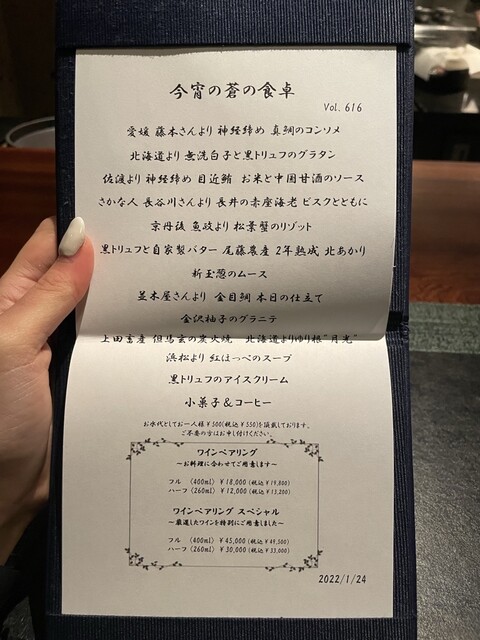 今宵の蒼の食卓
Vol. 616
愛媛 藤本さんより 神経締め 真鯛のコンソメ
北海道より 無洗白子と黒トリュフのグラタン
佐渡より 神経締め 目近鮪 お米と中国甘酒のソース
さかな人 長谷川さんより 長井の赤座海老 ビスクとともに
京丹後 魚政より 松葉蟹のリゾット
黒トリュフと自家製バター 尾藤農産 2年熟成 北あかり
新玉葱のムース
並木屋さんより 金目鯛 本日の仕立て
金沢柚子のグラニテ
上田畜産 但馬玄の炭火焼 北海道よりゆり根"月光"
浜松より 紅ほっぺのスープ
黒トリュフのアイスクリーム
小菓子&コーヒー
お水代としてお一人様¥500(税込¥550)を頂戴しております。
ご不要の方はお申し付けください。
ワインペアリング
~お料理に合わせてご用意します~
フル (400ml) ¥18,000 (税込¥19,800)
ハーフ (260ml) ¥12,000 (税込¥13,200)
ワインペアリング スペシャル
~厳選したワインを特別にご用意しました~
フル (400ml) ¥45,000 (税込¥49,500)
ハーフ (260ml) ¥30,000 (税込¥33,000)
2022/1/24